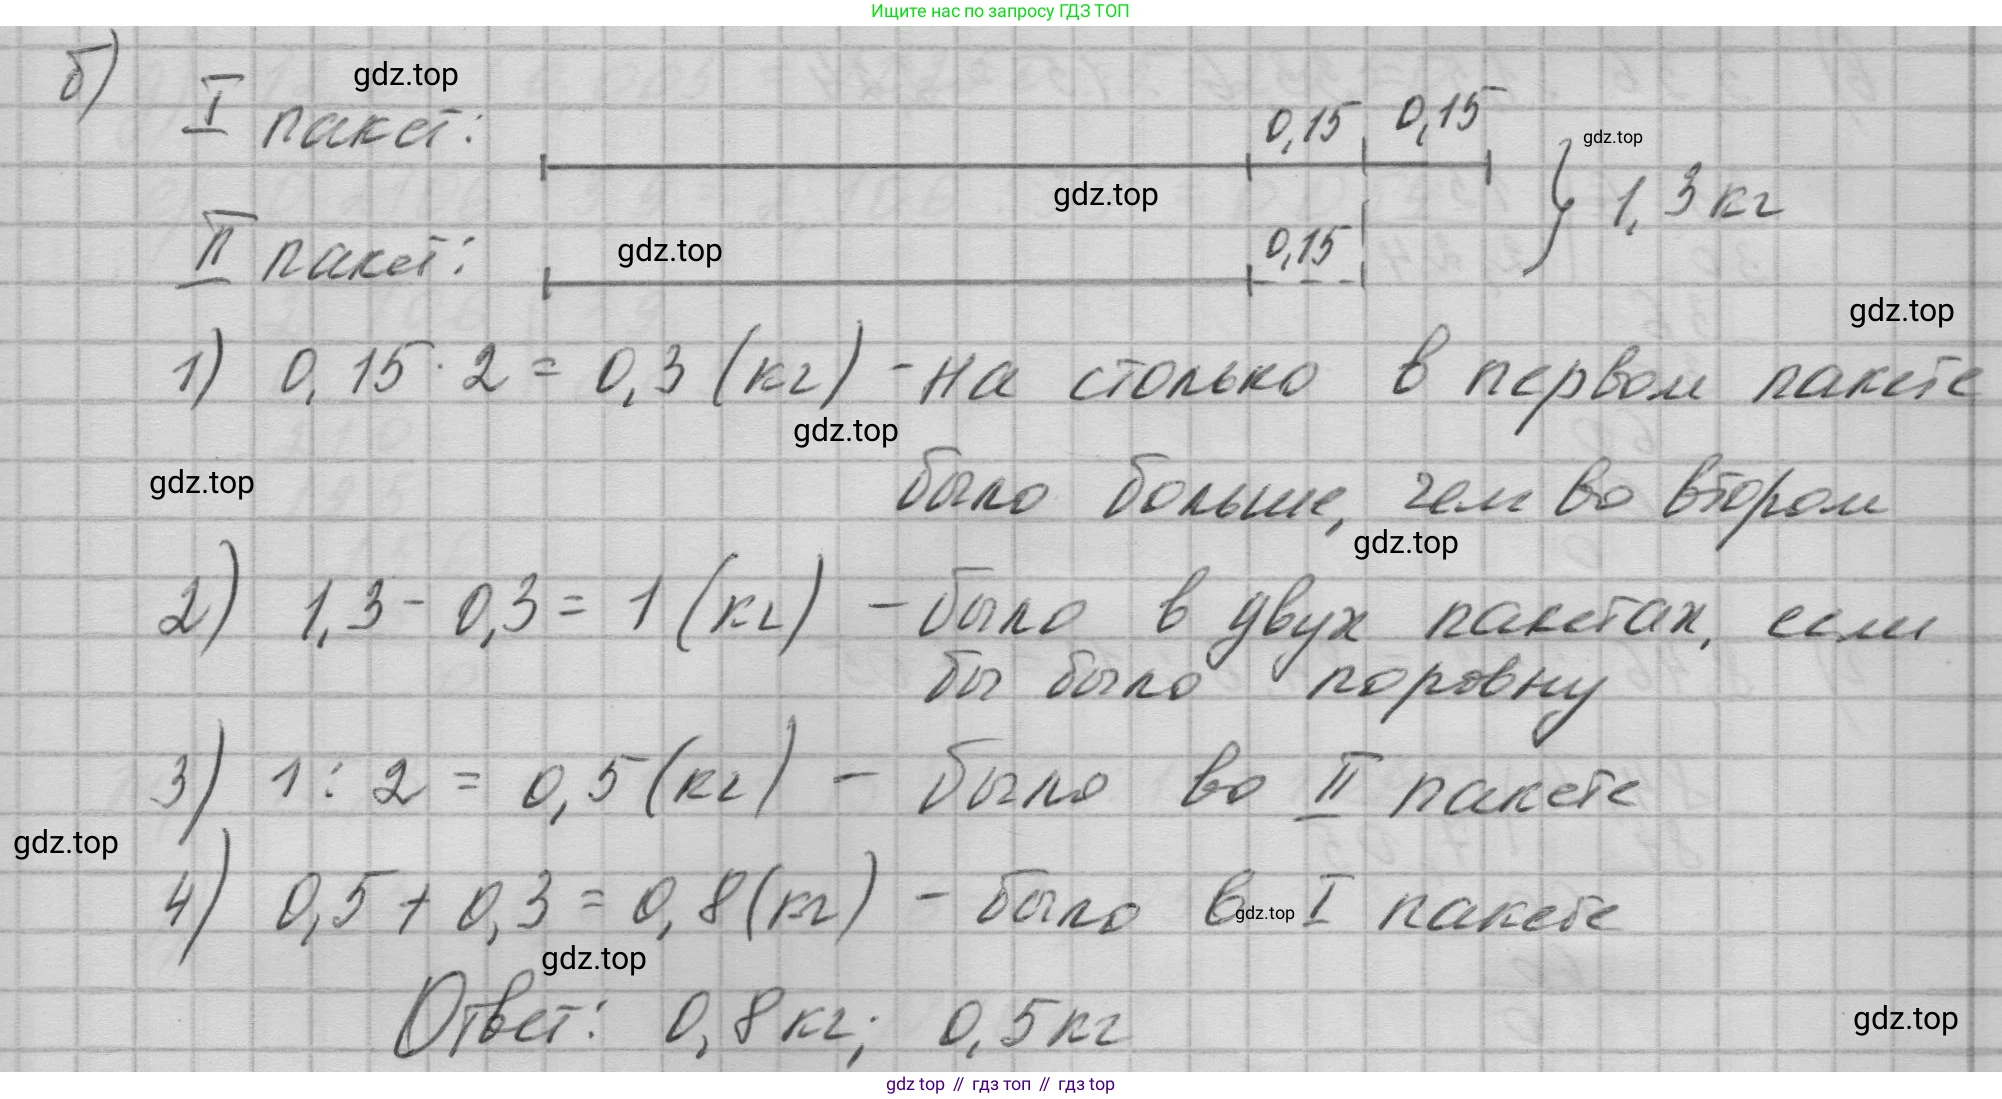 Ищите нас по запросу ГДЗ ТОП
б)
gdz.top
I пакет:
0,15 0,15
gdz.top
gdz.top
1,3 кг
II пакет:
gdz.top
0,15
gdz.top
1) 0,15 · 2 = 0,3 (кг) - на столько в первом пакете
gdz.top
gdz.top
было больше, чем во втором
gdz.top
2) 1,3 - 0,3 = 1 (кг) - было в двух пакетах, если
бы было поровну
3) 1 : 2 = 0,5 (кг) - было во II пакете
gdz.top
4) 0,5 + 0,3 = 0,8 (кг) - было в I пакете
gdz.top
gdz.top
Ответ: 0,8 кг; 0,5 кг
gdz.top
gdz top // гдз топ // gdz top